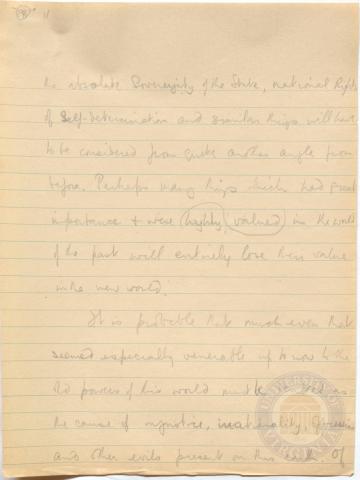 the absolute Sovereignty of the State, national Rights
of Self-determination and similar things will have
to be considered from quite another angle from
before. Perhaps many things which had great
importance & were highly valued in the world
of the past will entirely lose their value
in the new world.
It is probable that much even that
seemed especially venerable up to now to the
old powers of this world must be as
the cause of injustice, inequality,
and other evils present on this earth. Of